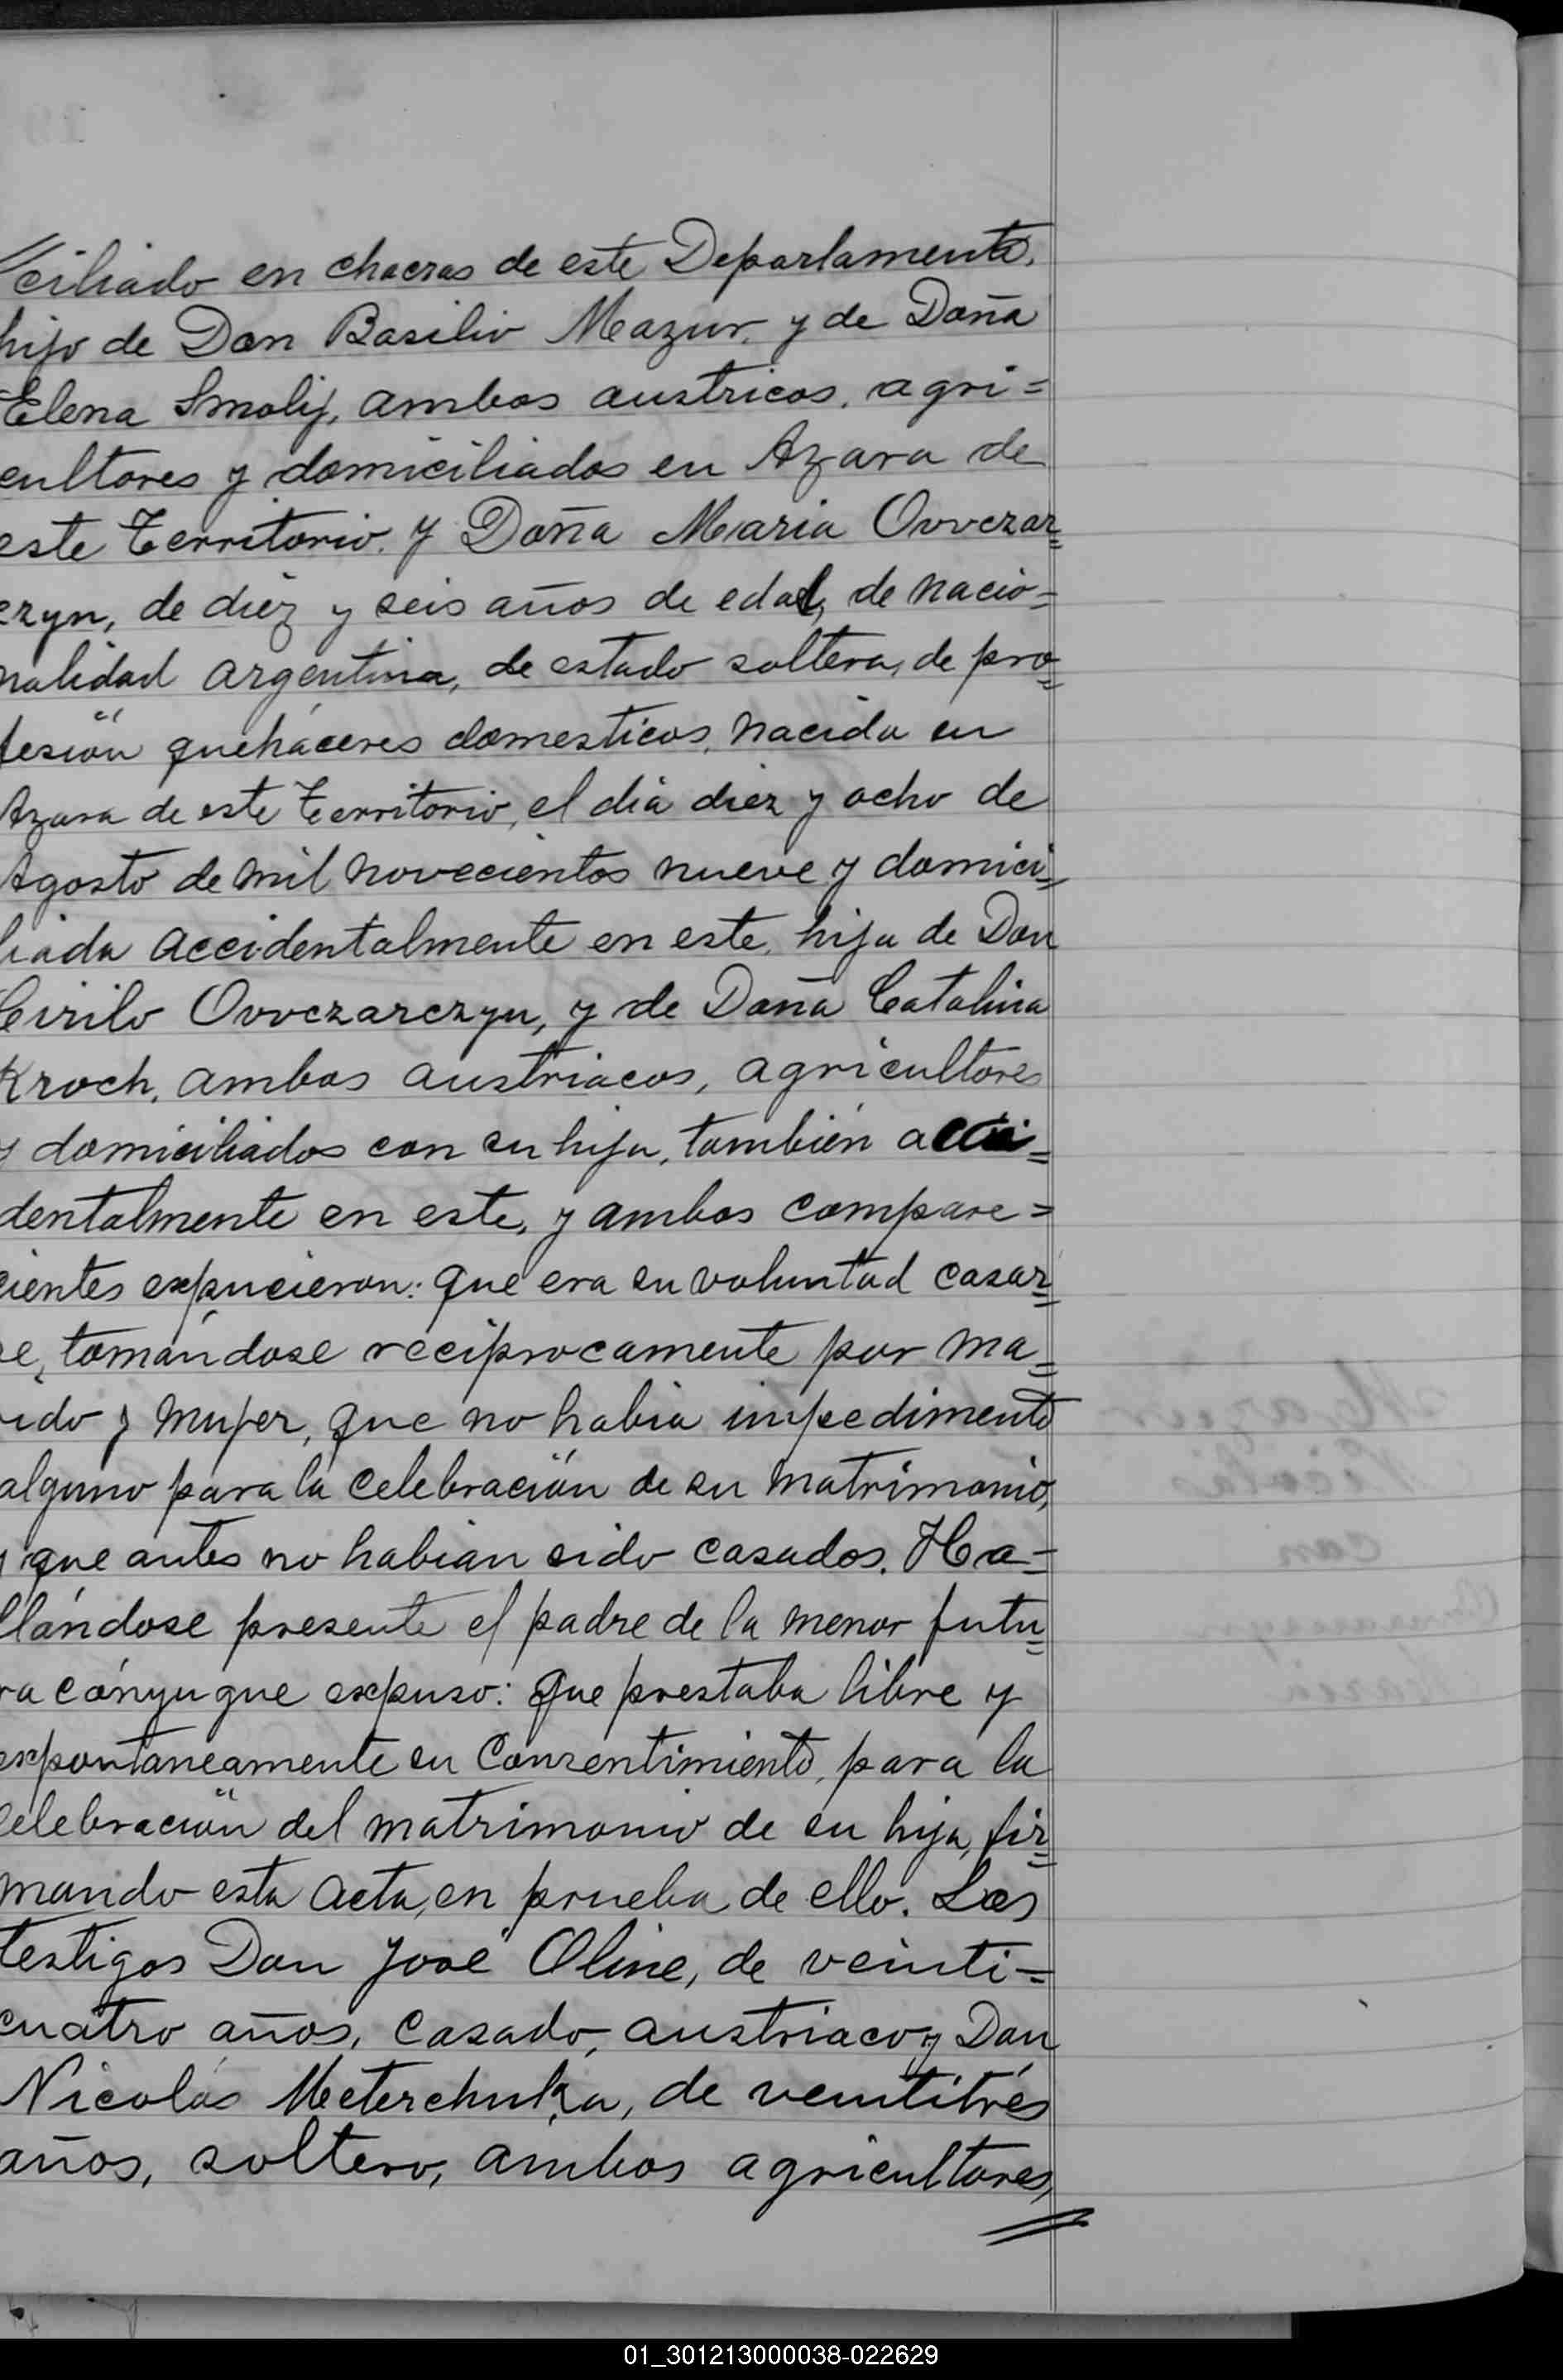 ciliado en chacras de este Departamento,
hijo de Don Basilio Mazur, y de Doña
Elena Smolij, ambos austricos, agri=
cultores y domiciliados en Azara de
este Territorio. Y Doña Maria Ovvczar=
czyn, de diez y seis años de edad, de nacio=
nalidad argentina, de estado soltera, de pro=
fesión quehaceres domesticos, nacida en
Azara de este Territorio, el dia diez y ocho de
Agosto de mil novecientos nueve y domici=
liada accidentalmente en este, hija de Don
Cirilo Ovvczarczyn, y de Doña Catalina
Kroch, ambos austriacos, agricultores
y domiciliados con su hija, también acci=
dentalmente en este, y ambos compare=
cientes expucieron: que era su voluntad casar=
se, tomándose reciprocamente por ma=
rido y mujer, que no habia impedimento
alguno para la celebración de su matrimonio,
y que antes no habian sido casados. Ha=
llándose presente el padre de la menor futu=
ra cónyugue expuso: que prestaba libre y
expontaneamente su consentimiento, para la
celebración del matrimonio de su hija, fir=
mando esta acta, en prueba de ello. Los
testigos Don José Oline, de veinti=
cuatro años, casado, austriaco y Don
Nicolás Meterchuka, de veintitrés
años, soltero, ambos agricultores,
Mazur
Nicolás
con
Maria
01_301213000038-022629